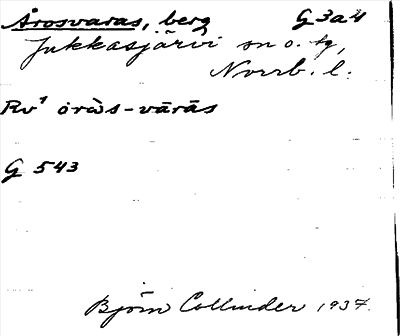 Årosvaras, berg G 3a4
Jukkasjärvi sn o. tg,
Norrb. l.
Rv¹ åròs-vāràs
G 543
Björn Collinder 1937.